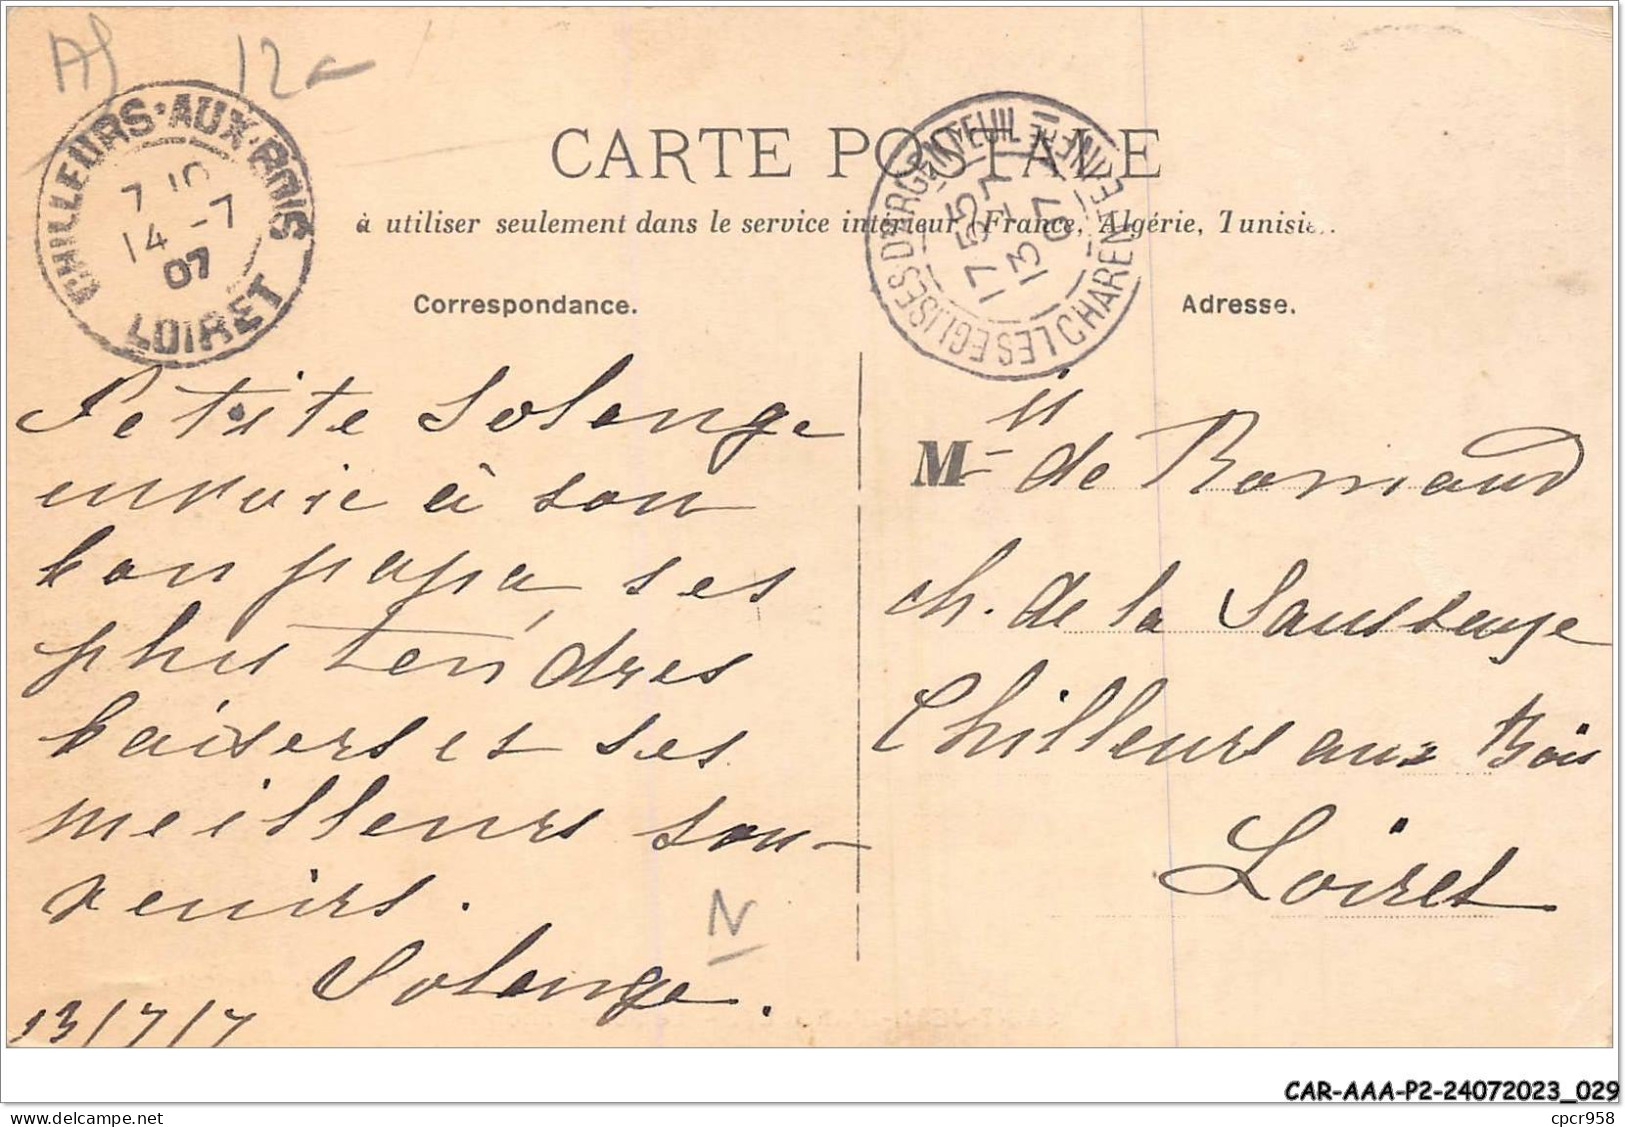 AJ 12
CHILLEURS-AUX-BOIS
7 10
14-7
07
LOIRET
CARTE POSTALE
à utiliser seulement dans le service intérieur (France, Algérie, Tunisie).
LES EGLISES D'ARGENTEUIL
17 55
13 - 7
07
CHARENTE INFRE
Correspondance.
Adresse.
Petite Solange
envoie à son
bon papa, ses
plus tendres
baisers et ses
meilleurs sou-
venirs.
Solange.
13/7/7
N
Mr de Romand
ch. de la Saussaye
Chilleurs aux Bois
Loiret
CAR-AAA-P2-24072023_029
www.delcampe.net
cpcr958